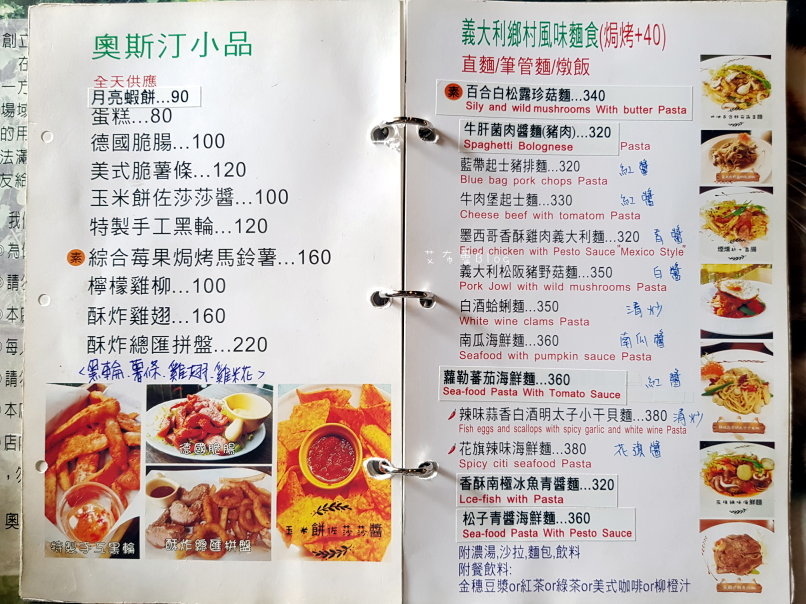 奧斯汀小品
全天供應
月亮蝦餅...90
蛋糕...80
德國脆腸...100
美式脆薯條...120
玉米餅佐莎莎醬...100
特製手工黑輪...120
素 綜合莓果焗烤馬鈴薯...160
檸檬雞柳...100
酥炸雞翅...160
酥炸總匯拼盤...220
<黑輪.薯條.雞翅.雞米花>
德國脆腸
特製手工黑輪
酥炸總匯拼盤
玉米餅佐莎莎醬
義大利鄉村風味麵食(焗烤+40)
直麵/筆管麵/燉飯
素 百合白松露珍菇麵...340
Sily and wild mushrooms With butter Pasta
牛肝菌肉醬麵(豬肉)...320
Spaghetti Bolognese Pasta
藍帶起士豬排麵...320 紅醬
Blue bag pork chops Pasta
牛肉堡起士麵...330 紅醬
Cheese beef with tomatom Pasta
墨西哥香酥雞肉義大利麵...320 青醬
Fried chicken with Pesto Sauce"Mexico Style"
義大利松阪豬野菇麵...350 白醬
Pork Jowl with wild mushrooms Pasta
白酒蛤蜊麵...350 清炒
White wine clams Pasta
南瓜海鮮麵...360 南瓜醬
Seafood with pumpkin sauce Pasta
蘿勒蕃茄海鮮麵...360 紅醬
Sea-food Pasta With Tomato Sauce
辣味蒜香白酒明太子小干貝麵...380 清炒
Fish eggs and scallops with spicy garlic and white wine Pasta
花旗辣味海鮮麵...380 花旗醬
Spicy citi seafood Pasta
香酥南極冰魚青醬麵...320
Lce-fish with Pasta
松子青醬海鮮麵...360
Sea-food Pasta With Pesto Sauce
附濃湯,沙拉,麵包,飲料
附餐飲料:
金穗豆漿or紅茶or綠茶or美式咖啡or柳橙汁